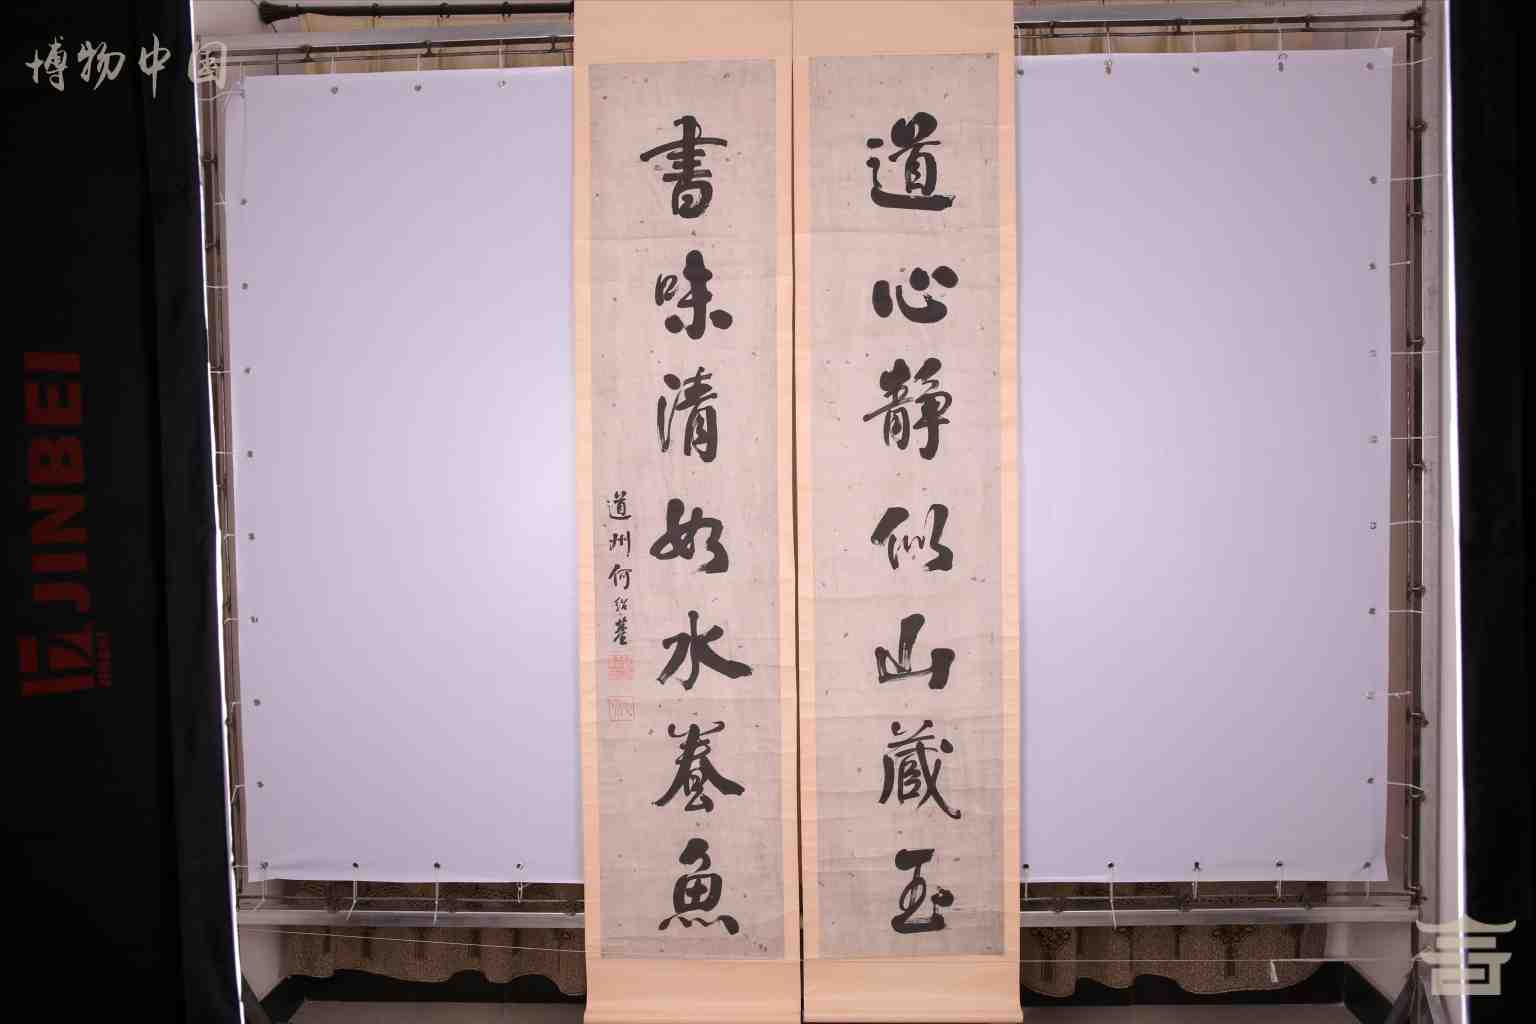 博物中国
道心静似山藏玉
書味清如水養魚
道州何紹基
JINBEI